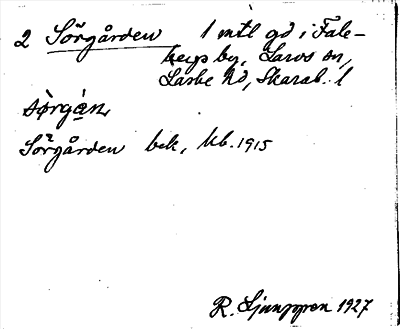 2 Sörgården 1 mtl gd i Fale-
keps by, Larvs sn,
Laske hd, Skarab. l
sörgán
Sörgården bek, Kb. 1915
R. Ljunggren 1927